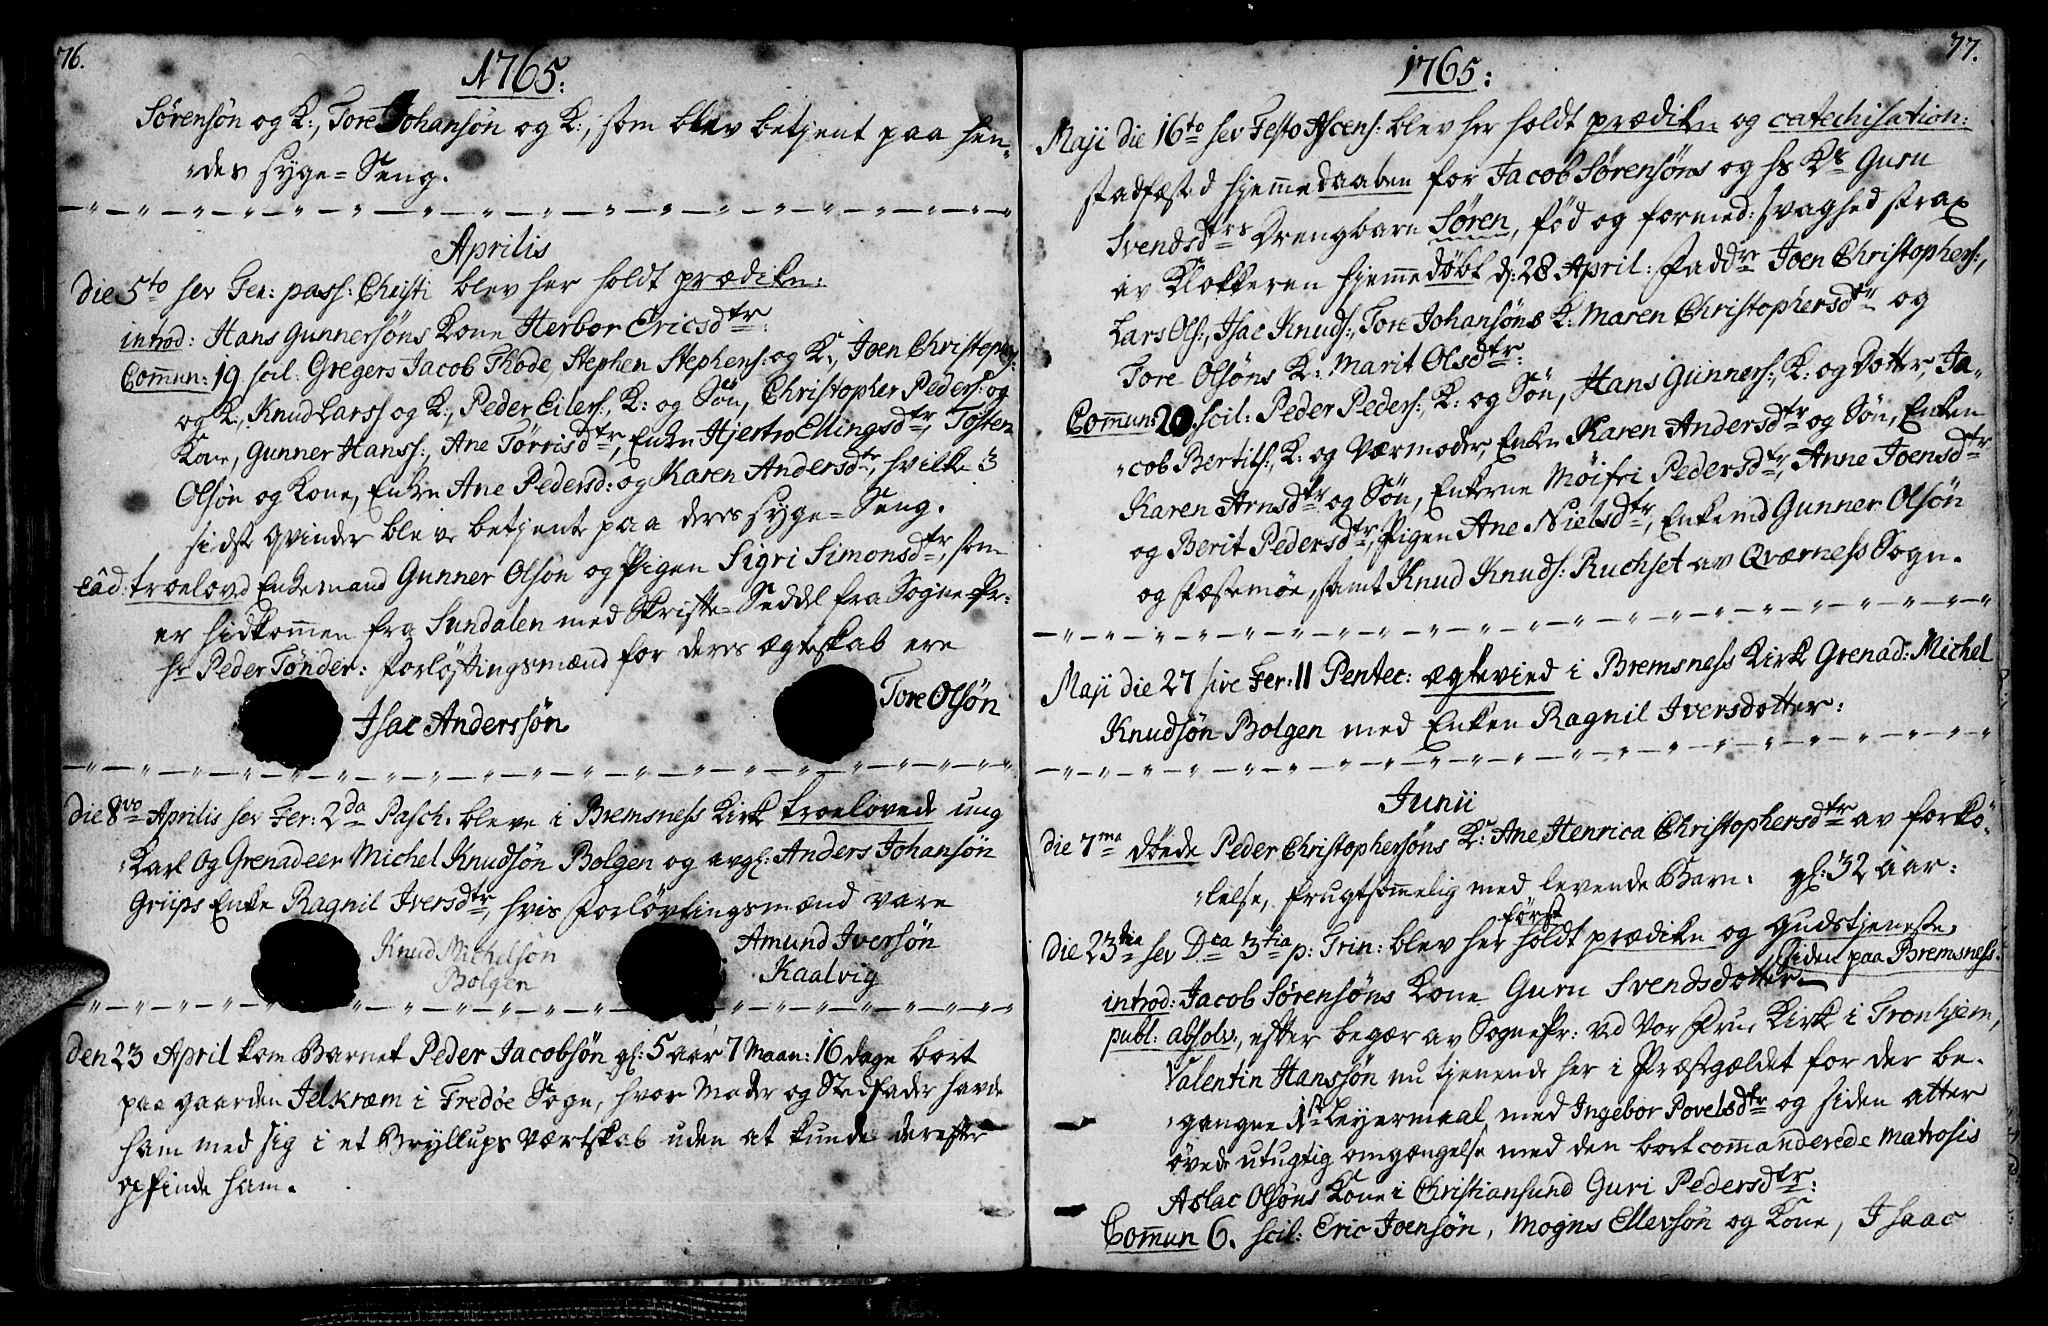 76.
1765:
Sørensøn og K:, Tore Johansøn og K:, som blev betjent paa hen-
des syge-Seng.
Aprilis
Die 5to sev Fer: pass: Christi blev her holdt prædiken:
introd: Hans Gunnersøns Kone Herbor Ericsdtr:
Com̄un: 19 scil: Gregers Jacob Thode, Stephen Stephens: og K:, Joen Christophers:
og K:, Knud Larss og K:, Peder Eilers:, K: og Søn, Christopher Peders: og
Kone, Gunner Hanss:, Ane Tørrisdtr, Enken Hjertro Ellingsdtr, Tosten
Olsøn og Kone, Enken Ane Pedersd: og Karen Andersdtr, hvilke 3
sidste Qvinder bleve betjent paa deres syge-Seng.
eâd: troelovd Enkemand Gunner Olsøn og Pigen Sigri Simonsdtr, som
er hidkom̄en fra Sundalen med Skrifte-Seddel fra Sogne Pr:
Hr Peder Tønder: Forløftingsmænd for deres ægteskab ere
Isac Anderssøn
Tore Olsøn
Die 8vo Aprilis sev Fer: 2da Pasch: bleve i Bremsness Kirke troelovede ung
Karl og Grenadeer Michel Knudsøn Bolgen og avgl: Anders Johansøn
Grips Enke Ragnil Iversdtr, hvis Forløvtingsmænd vare
Knud Michelsøn
Bolgen
Amund Iversøn
Kaalvig
Den 23 April kom Barnet Peder Jacobsøn gl: 5 aar 7 Maan: 16 dage bort
paa gaarden Jelkræm i Fredøe Sogn, hvor Moder og Stedfader havde
ham med sig i et Bryllups Værtskab uden at kunde derefter
opfinde ham.
77.
1765:
Maji die 16to sev Festo Ascens: blev her holdt prædiken og catechisation:
stadfæsted hjem̄edaaben for Jacob Sørensøns og hs Ks Guru
Svendsdtrs Drengbarn Søren, fød og formed: svaghed strax
av Klokkeren hjem̄edøbt d: 28 April: Faddre Joen Christophers:,
Lars Ols:, Isac Knuds:, Tore Johansøns K: Maren Christophersdtr og
Tore Olsøns K: Marit Olsdtr:
Com̄un: 20. scil: Peder Peders:, K: og Søn, Hans Gunners:, K: og Dotter, Ja-
cob Bertils:, K: og Værmoder, Enken Karen Andersdtr og Søn, Enken
Karen Arnsdtr og Søn, Enkerne Møifri Pedersdtr, Anne Joensdtr
og Berit Pedersdtr, Pigen Ane Nielsdtr, Enkemd Gunner Olsøn
og Fæstemøe, samt Knud Knuds: Ruchset av Qværness Sogn.
Maji die 27 sive Fer: 11 Pentec: ægtevied i Bremsness Kirk Grenad: Michel
Knudsøn Bolgen med Enken Ragnil Iversdotter:
Junii
Die 7ma døede Peder Christophersøns K: Ane Henrica Christophersdtr av forkø-
lelse, frugtsom̄elig med levende Barn. gl: 32 aar:
Die 23tia sev Dca 3tia p: Trin: blev her først holdt prædiken og Gudstjeneste,
siden paa Bremsness.
introd: Jacob Sørensøns Kone Guru Svendsdotter
publ: absolv:, efter begær av SognePr: ved Vor Frue Kirk i Tronhjem,
Valentin Hanssøn nu tjenende her i Præstgældet for der be-
gangne 1st Leyermaal med Ingebor Povelsdtr og siden atter
øvede utugtig omgængelse med den bortcom̄anderede Matrosis
Aslac Olsøns Kone i Christiansund Guri Pedersdtr:
Com̄un 6. scil: Eric Joensøn, Mogns Ellevsøn og Kone, Isaac